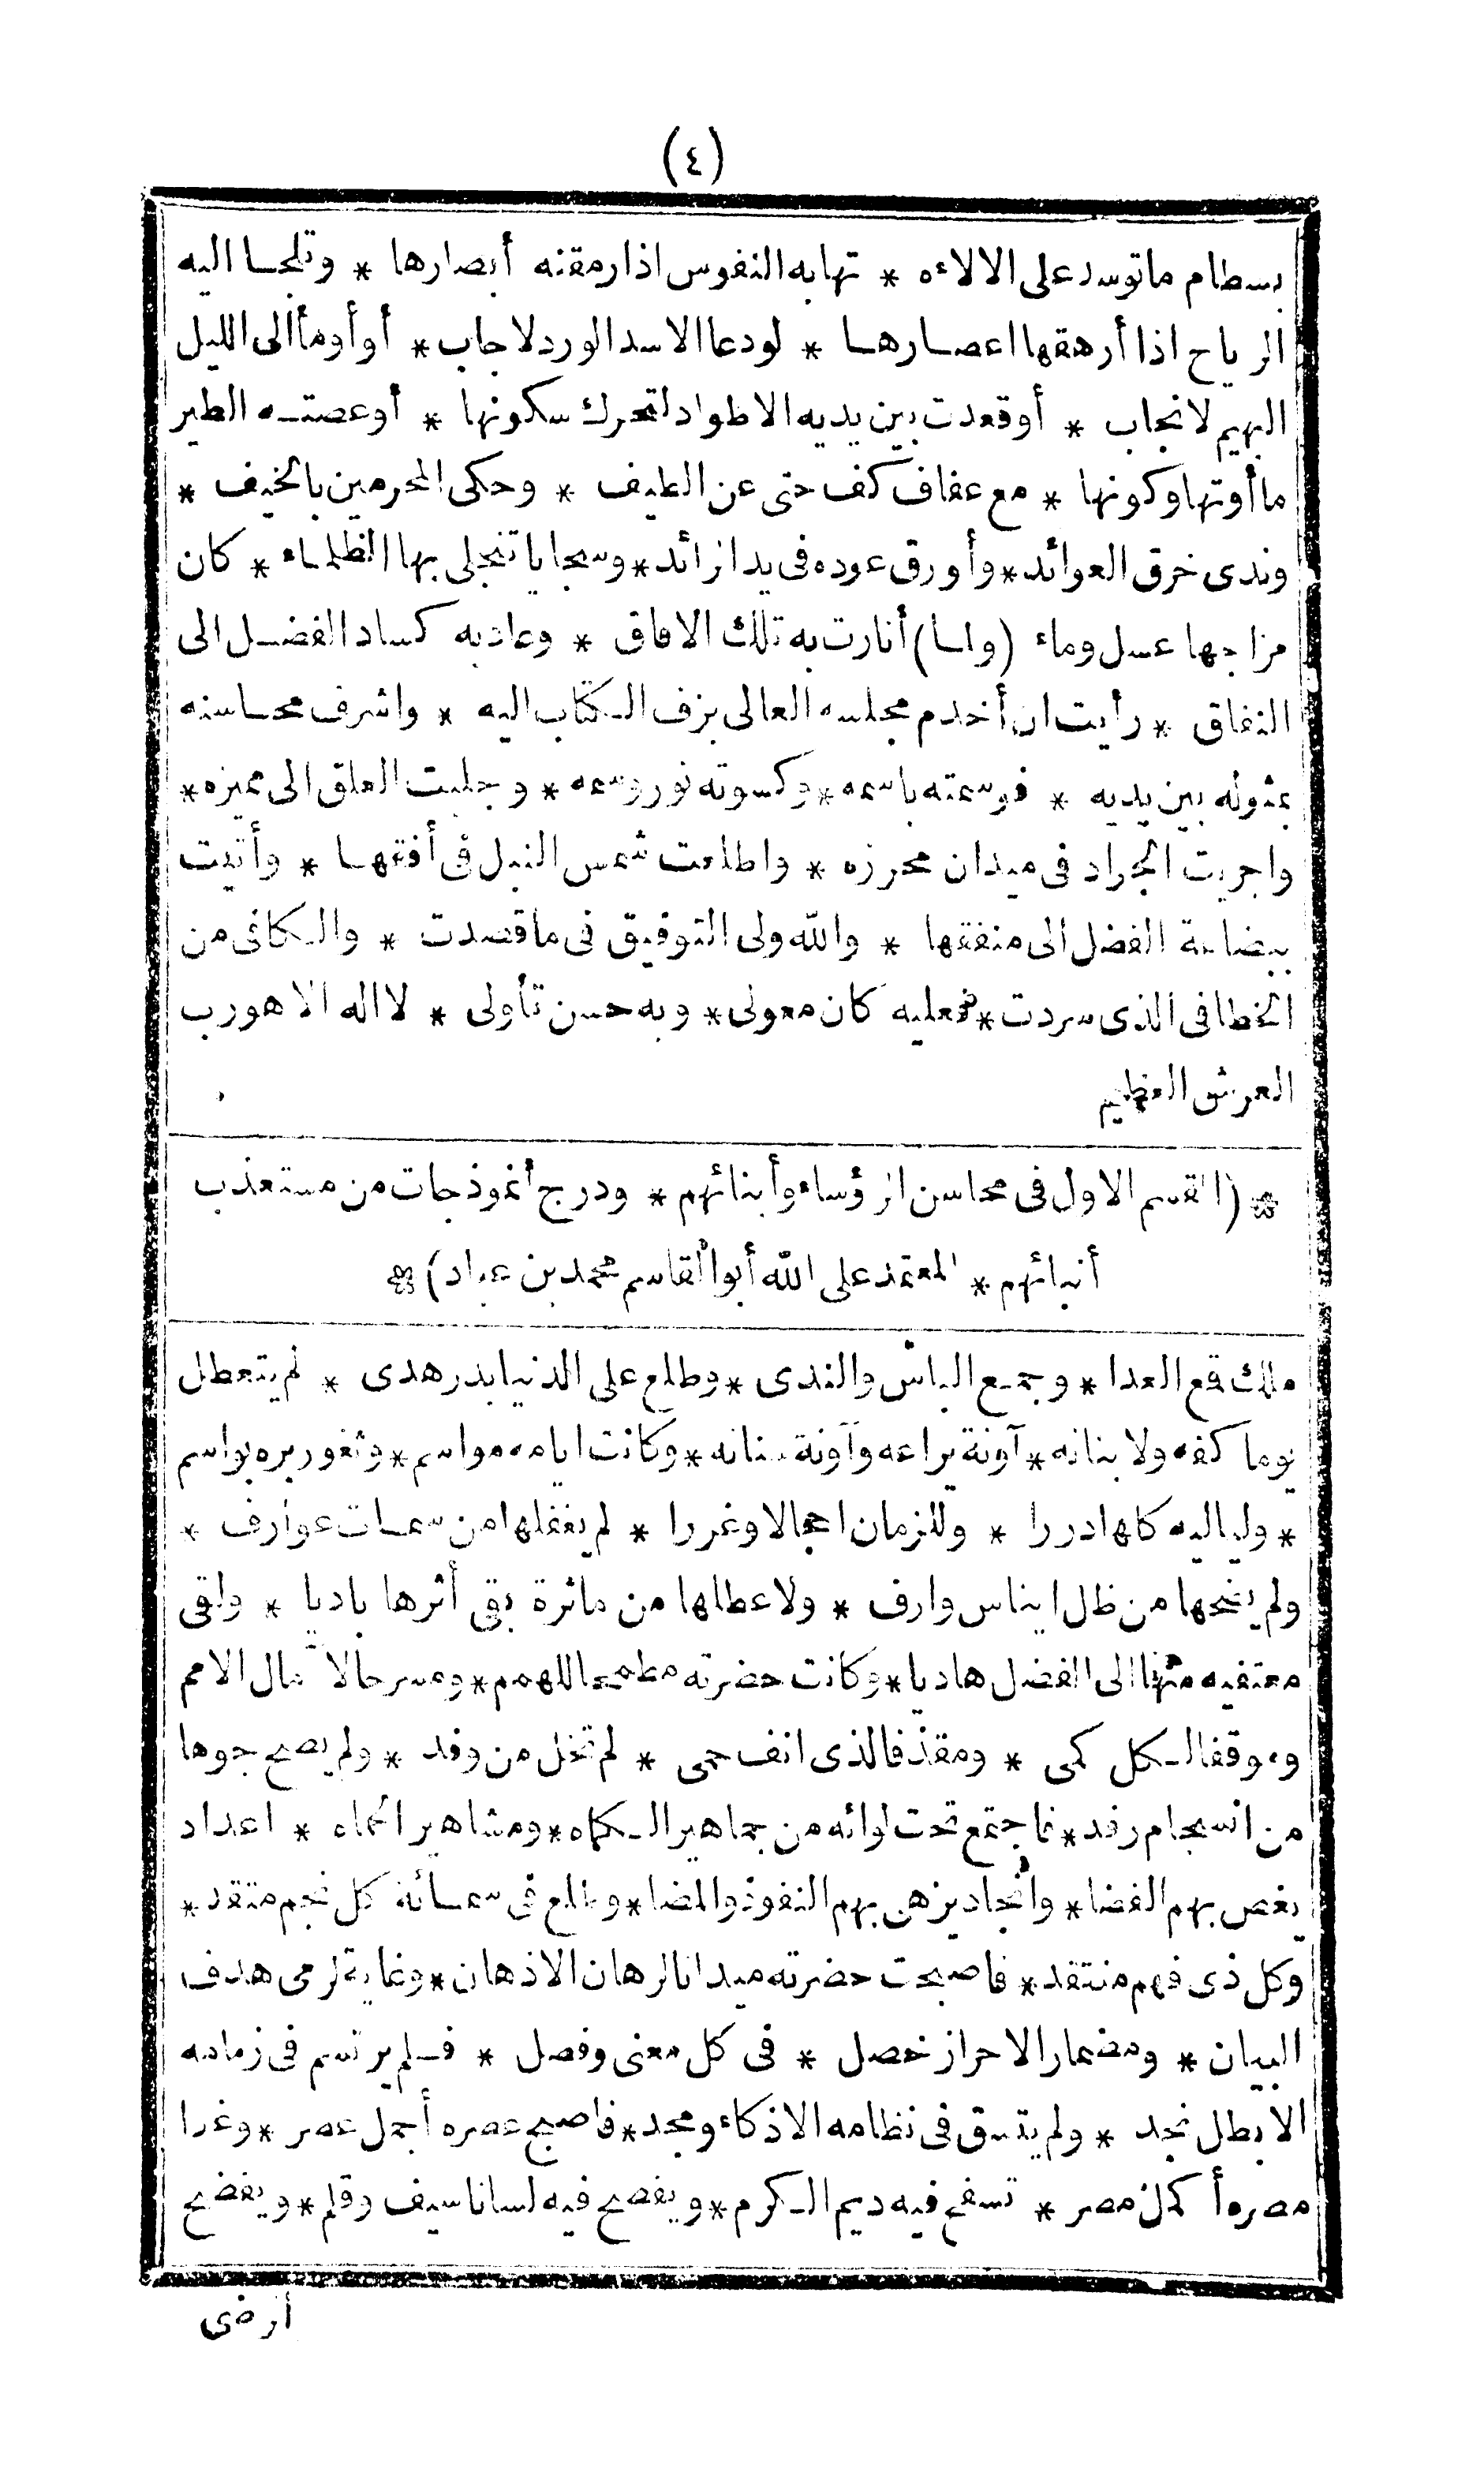 (٤)
بسطام ماتوسد على الالاءه * تهابه النفوس اذا رمقته أبصارها * وتلجا اليه
الرياح اذا أرهقها اعصارها * لودعا الاسد الورد لاجاب * أوأومأ الى الليل
البهيم لانجاب * أوقعدت بين يديه الاطواد لتحرك سكونها * أوعصته الطير
ماأوتها وكونها * مع عفاف كف حتى عن الطيف * وحكى المحرمين بالخيف *
وندى خرق العوائد * وأورق عوده فى يد الرائد * وسجايا تنجلى بها الظلماء * كان
مزاجها عسل وماء (ولما) أنارت به تلك الافاق * وعادبه كساد الفضل الى
النفاق * رأيت ان أخدم مجلسه العالى بزف الكتاب اليه * واشرف محاسنه
بمثوله بين يديه * فوسمته باسمه * وكسوته نور وسمه * وجلبت العلق الى مميزه *
واجريت الجراد فى ميدان محرزه * واطلعت شمس النبل فى أفقها * وأتيت
ببضاعة الفضل الى منفقها * والله ولى التوفيق فى ماقصدت * والكافى من
الخطا فى الذى سردت * فعليه كان معولى * وبه حسن تأولى * لااله الا هو رب
العرش العظيم
* (القسم الاول فى محاسن الرؤساء وأبنائهم * ودرج أنموذجات من مستعذب
أنبائهم * المعتمد على الله أبوالقاسم محمد بن عباد) *
ملك قمع العدا * وجمع الباس والندى * وطلع على الدنيا بدر هدى * لم يتعطل
يوما كفه ولا بنانه * آونة يراعه وآونة سنانه * وكانت ايامه مواسم * وثغور بره بواسم
* ولياليه كلها دررا * وللزمان احجالا وغررا * لم يغفلها من سمات عوارف *
ولم يضحها من ظل ايناس وارف * ولاعطلها من ماثرة بقى أثرها باديا * ولقى
معتفيه منها الى الفضل هاديا * وكانت حضرته مطمحا للهمم * ومسرحا لا آمال الامم
وموقفا لكل كمى * ومقذفا لذى انف حمى * لم تخل من وفد * ولم يصح جوها
من انسجام رفد * فاجتمع تحت لوائه من جماهير الكماه * ومشاهير الحماه * اعداد
يغص بهم الفضا * وأنجاد يزهى بهم النفوذ والمضا * وطلع فى سمائه كل نجم متقد *
وكل ذى فهم منتقد * فاصبحت حضرته ميدانا لرهان الاذهان * وغاية لرمى هدف
البيان * ومضمارا لاحراز خصل * فى كل معنى وفصل * فلم يرتسم فى زمامه
الا بطل نجد * ولم يتسق فى نظامه الاذكاء ومجد * فاصبح عصره أجمل عصر * وغدا
مصره أكمل مصر * تسفح فيه ديم الكرم * ويفصح فيه لسانا سيف وقلم * ويفضح
أرضى